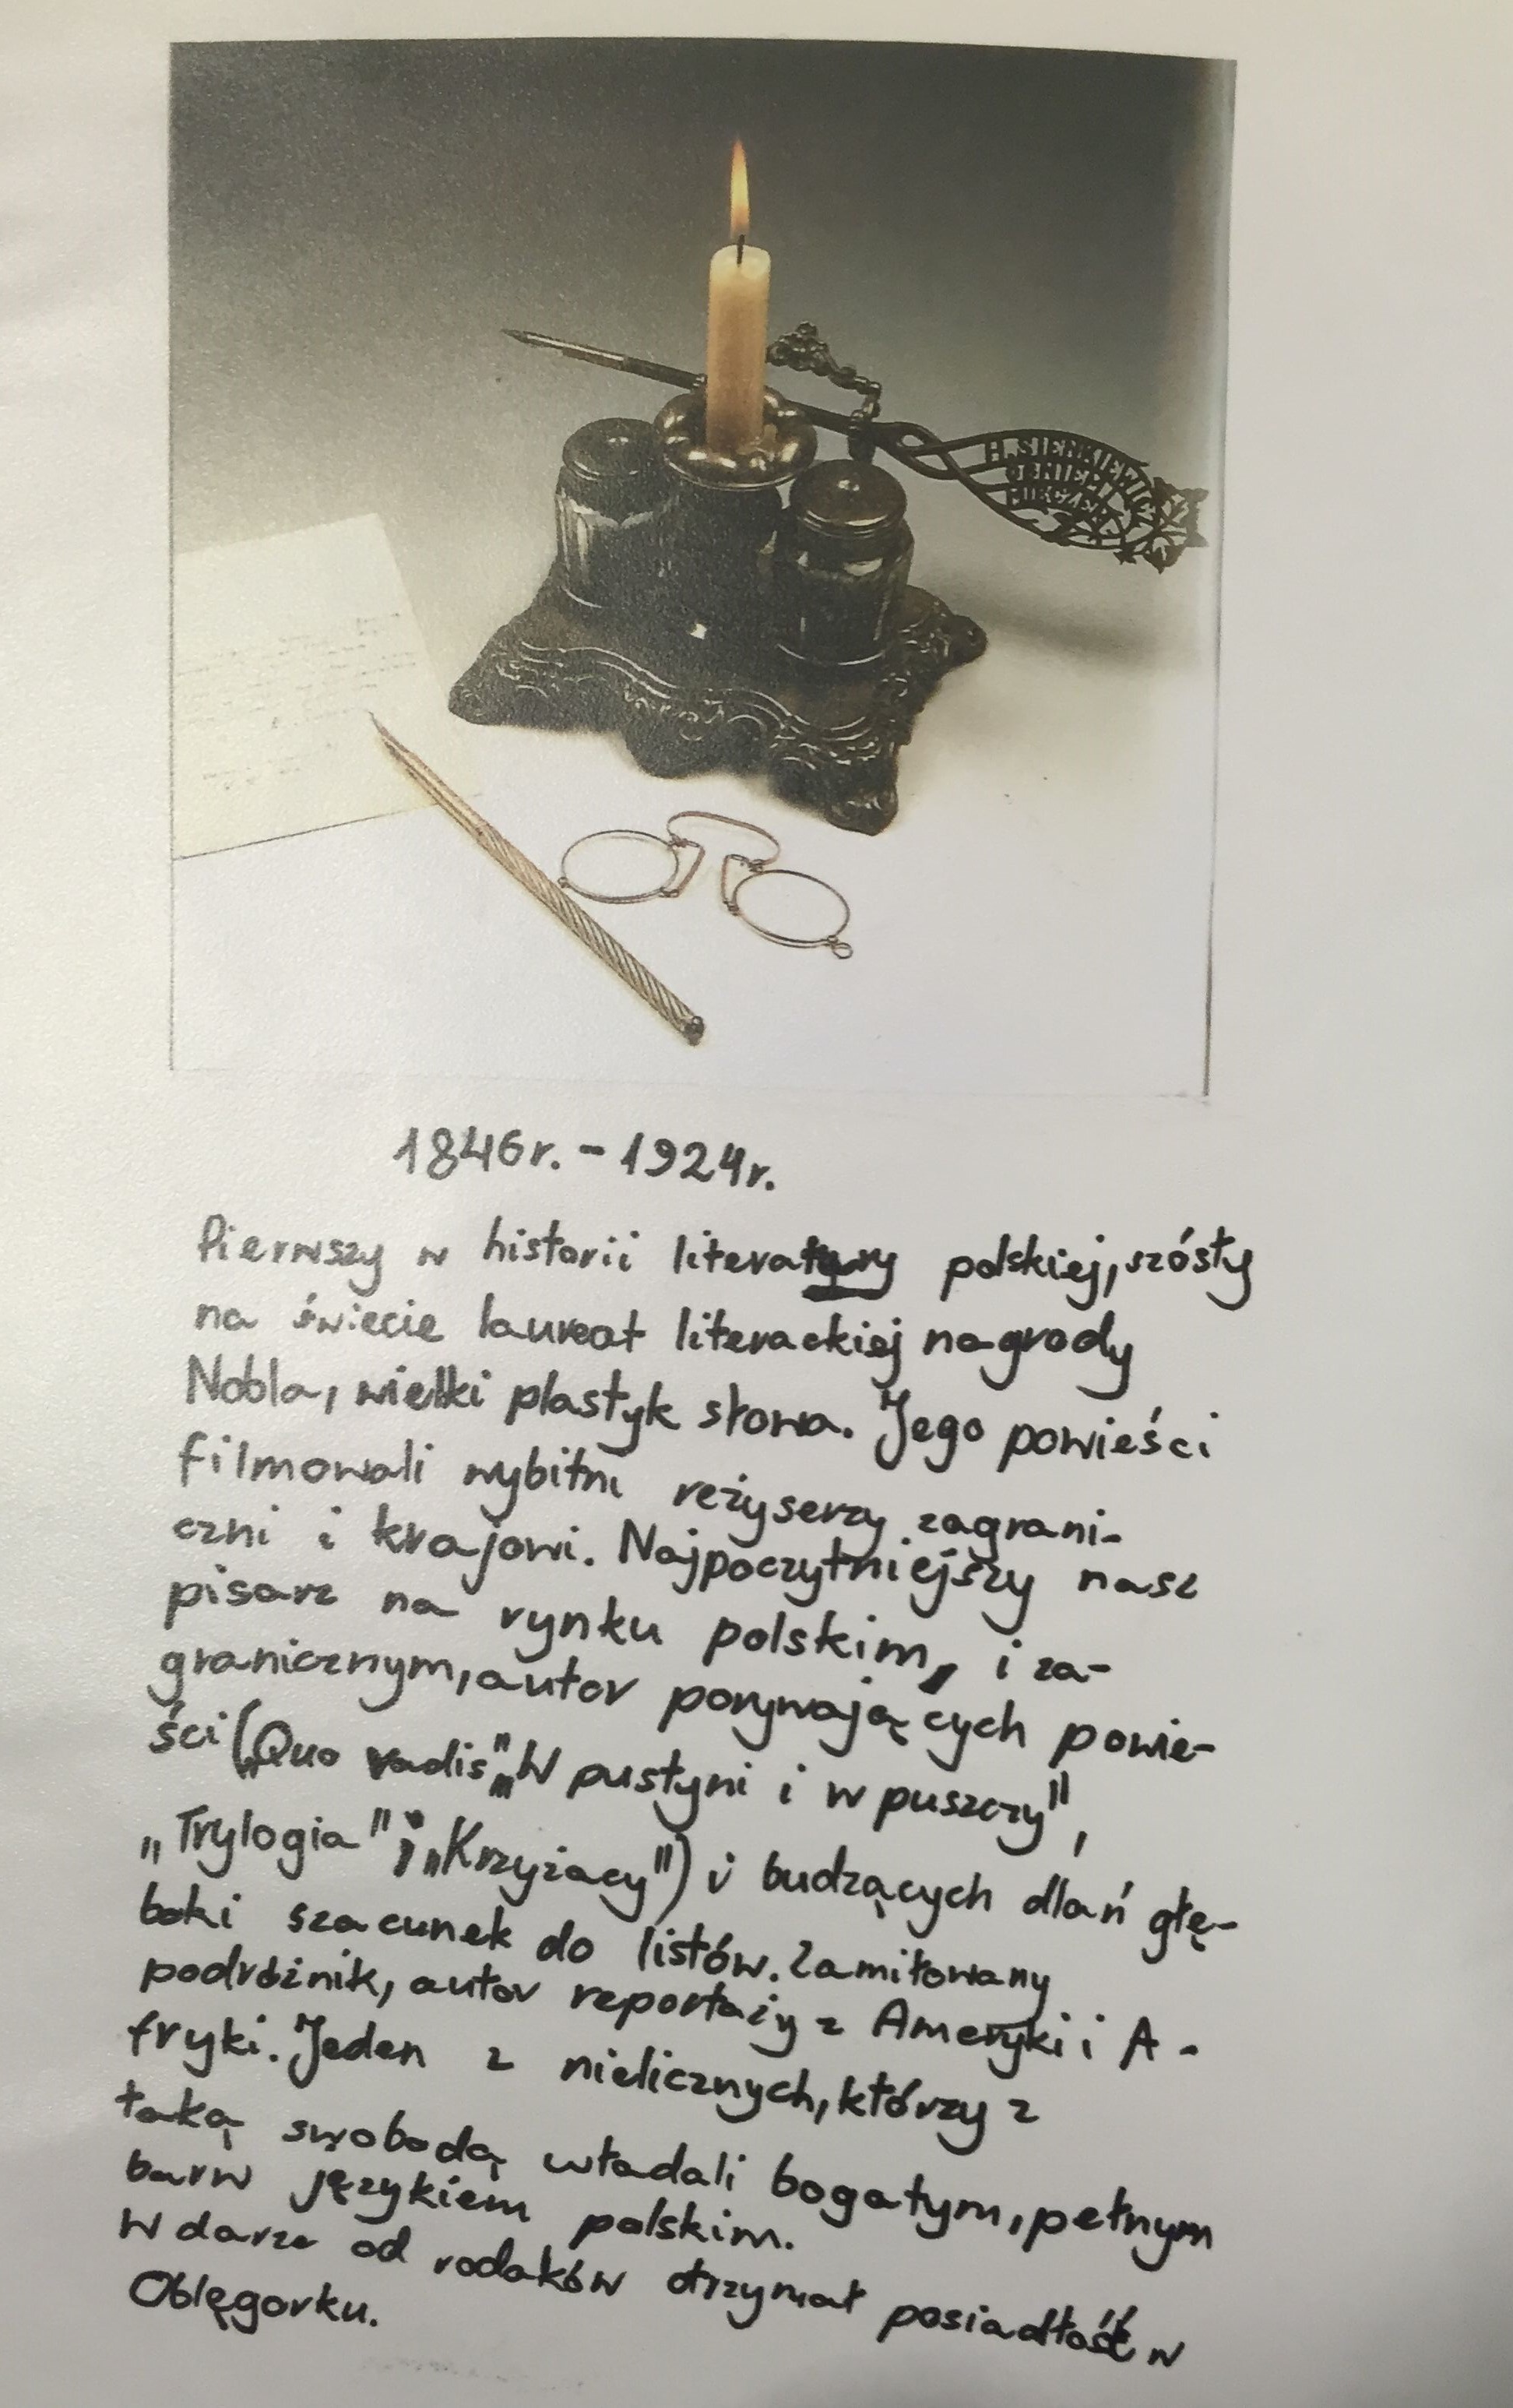 H. SIENKIEWICZ
1846r. - 1924r.
Pierwszy w historii literatury polskiej, szósty
na świecie laureat literackiej nagrody
Nobla, wielki plastyk słowa. Jego powieści
filmowali wybitni reżyserzy zagrani-
czni i krajowi. Najpoczytniejszy nasz
pisarz na rynku polskim, i za-
granicznym, autor porywających powie-
ści („Quo vadis” „W pustyni i w puszczy”,
„Trylogia” i „Krzyżacy”) i budzących dlań głę-
boki szacunek do listów. Zamiłowany
podróżnik, autor reportaży z Ameryki i A-
fryki. Jeden z nielicznych, którzy z
taką swobodą władali bogatym, pełnym
barw językiem polskim.
W darze od rodaków otrzymał posiadłość w
Oblęgorku.